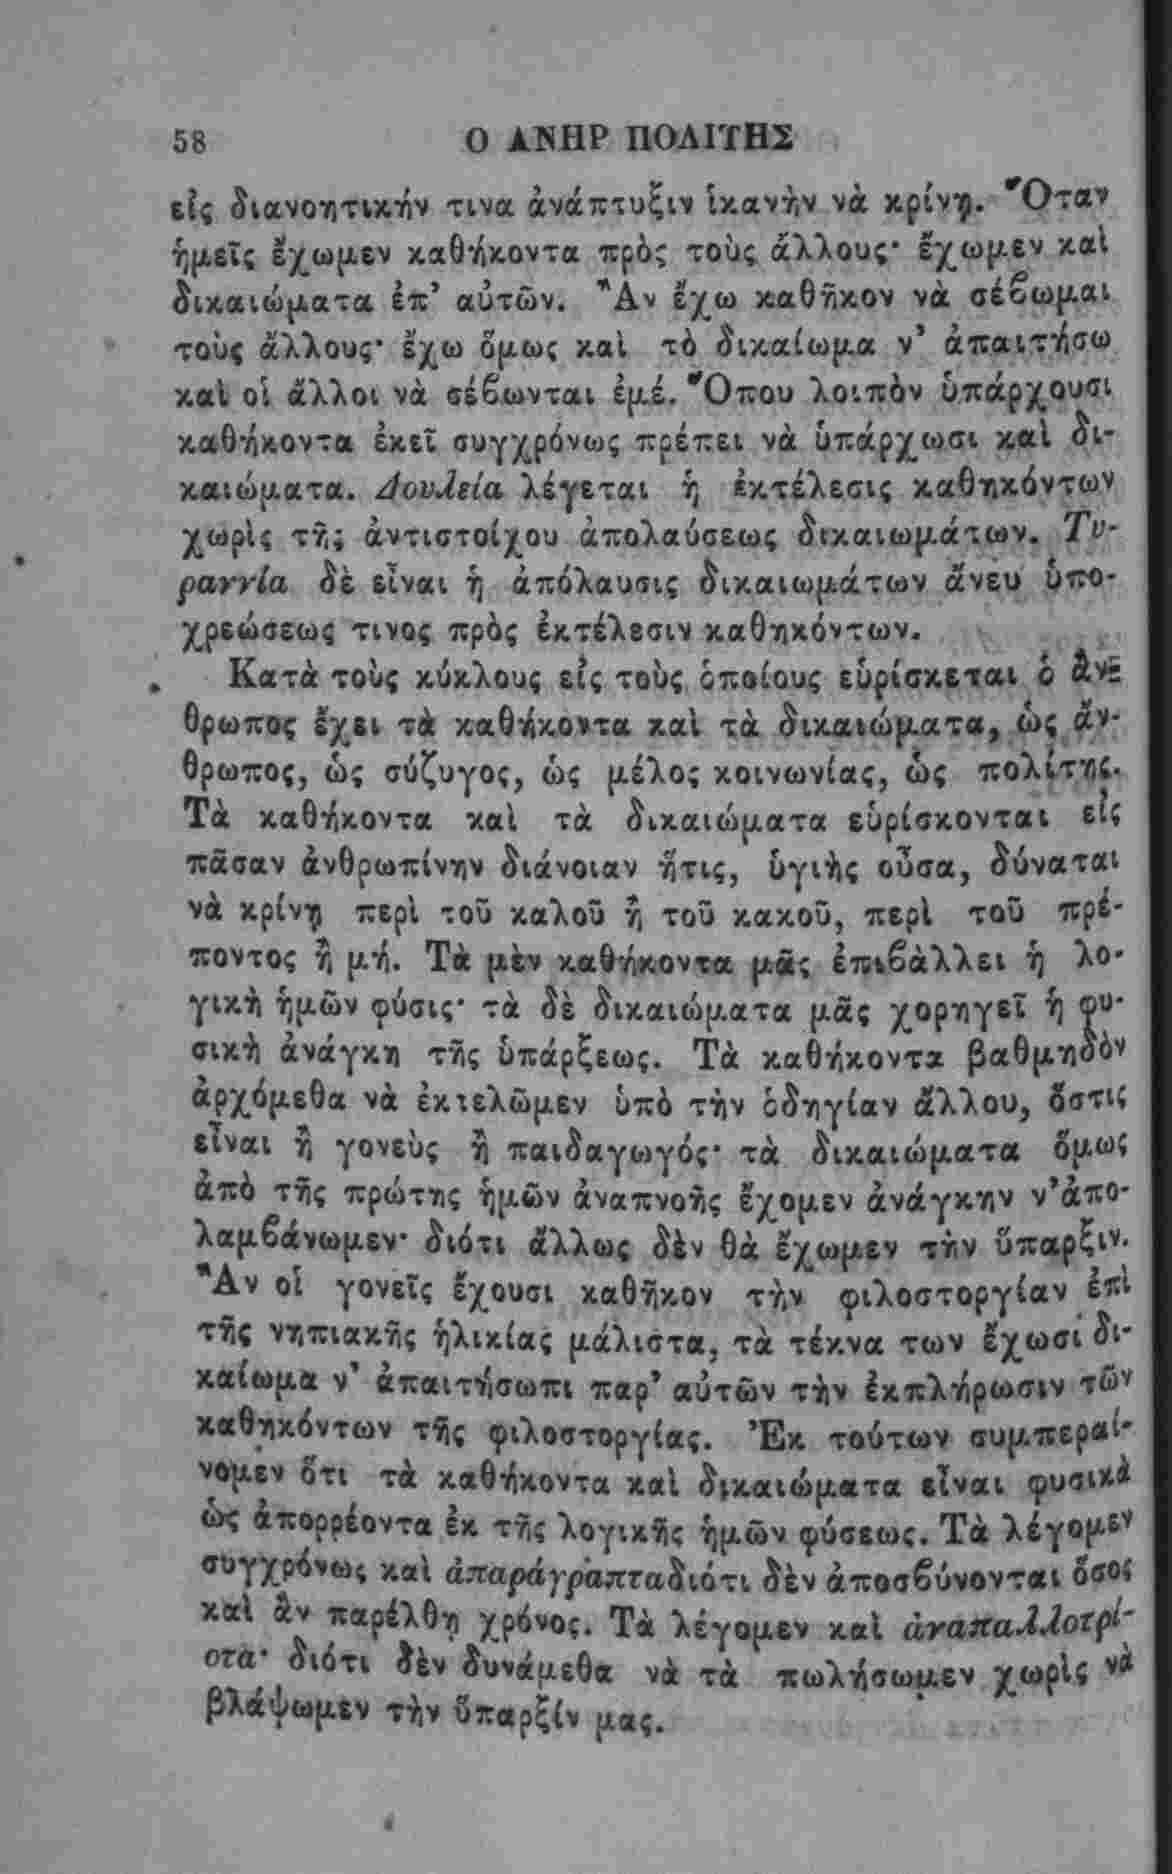 58 Ο ΑΝΗΡ ΠΟΛΙΤΗΣ
εἰς διανοητικήν τινα ἀνάπτυξιν ἱκανὴν νὰ κρίνῃ. Ὅταν
ἡμεῖς ἔχωμεν καθήκοντα πρὸς τοὺς ἄλλους· ἔχωμεν καὶ
δικαιώματα ἐπ’ αὐτῶν. Ἂν ἔχω καθῆκον νὰ σέβωμαι
τοὺς ἄλλους· ἔχω ὅμως καὶ τὸ δικαίωμα ν’ ἀπαιτήσω
καὶ οἱ ἄλλοι νὰ σέβωνται ἐμέ. Ὅπου λοιπὸν ὑπάρχουσι
καθήκοντα ἐκεῖ συγχρόνως πρέπει νὰ ὑπάρχωσι καὶ δι-
καιώματα. Δουλεία λέγεται ἡ ἐκτέλεσις καθηκόντων
χωρὶς τῆς ἀντιστοίχου ἀπολαύσεως δικαιωμάτων. Τυ-
ραννία δὲ εἶναι ἡ ἀπόλαυσις δικαιωμάτων ἄνευ ὑπο-
χρεώσεως τινος πρὸς ἐκτέλεσιν καθηκόντων.
Κατὰ τοὺς κύκλους εἰς τοὺς ὁποίους εὑρίσκεται ὁ ἄν-
θρωπος ἔχει τὰ καθήκοντα καὶ τὰ δικαιώματα, ὡς ἄν-
θρωπος, ὡς σύζυγος, ὡς μέλος κοινωνίας, ὡς πολίτης.
Τὰ καθήκοντα καὶ τὰ δικαιώματα εὑρίσκονται εἰς
πᾶσαν ἀνθρωπίνην διάνοιαν ἥτις, ὑγιὴς οὖσα, δύναται
νὰ κρίνῃ περὶ τοῦ καλοῦ ἢ τοῦ κακοῦ, περὶ τοῦ πρέ-
ποντος ἢ μή. Τὰ μὲν καθήκοντα μᾶς ἐπιβάλλει ἡ λο-
γικὴ ἡμῶν φύσις· τὰ δὲ δικαιώματα μᾶς χορηγεῖ ἡ φυ-
σικὴ ἀνάγκη τῆς ὑπάρξεως. Τὰ καθήκοντα βαθμηδὸν
ἀρχόμεθα νὰ ἐκτελῶμεν ὑπὸ τὴν ὁδηγίαν ἄλλου, ὅστις
εἶναι ἢ γονεὺς ἢ παιδαγωγός· τὰ δικαιώματα ὅμως
ἀπὸ τῆς πρώτης ἡμῶν ἀναπνοῆς ἔχομεν ἀνάγκην ν’ἀπο-
λαμβάνωμεν· διότι ἄλλως δὲν θὰ ἔχωμεν τὴν ὕπαρξιν.
Ἂν οἱ γονεῖς ἔχουσι καθῆκον τὴν φιλοστοργίαν ἐπὶ
τῆς νηπιακῆς ἡλικίας μάλιστα, τὰ τέκνα των ἔχωσι δι-
καίωμα ν’ ἀπαιτήσωπι παρ’ αὐτῶν τὴν ἐκπλήρωσιν τῶν
καθηκόντων τῆς φιλοστοργίας. Ἐκ τούτων συμπεραί-
νομεν ὅτι τὰ καθήκοντα καὶ δικαιώματα εἶναι φυσικὰ
ὡς ἀπορρέοντα ἐκ τῆς λογικῆς ἡμῶν φύσεως. Τὰ λέγομεν
συγχρόνως καὶ ἀπαράγραπταδιότι δὲν ἀποσβύνονται ὅσος
καὶ ἂν παρέλθῃ χρόνος. Τὰ λέγομεν καὶ ἀναπαλλοτρί-
οτα· διότι δὲν δυνάμεθα νὰ τὰ πωλήσωμεν χωρὶς νὰ
βλάψωμεν τὴν ὕπαρξίν μας.